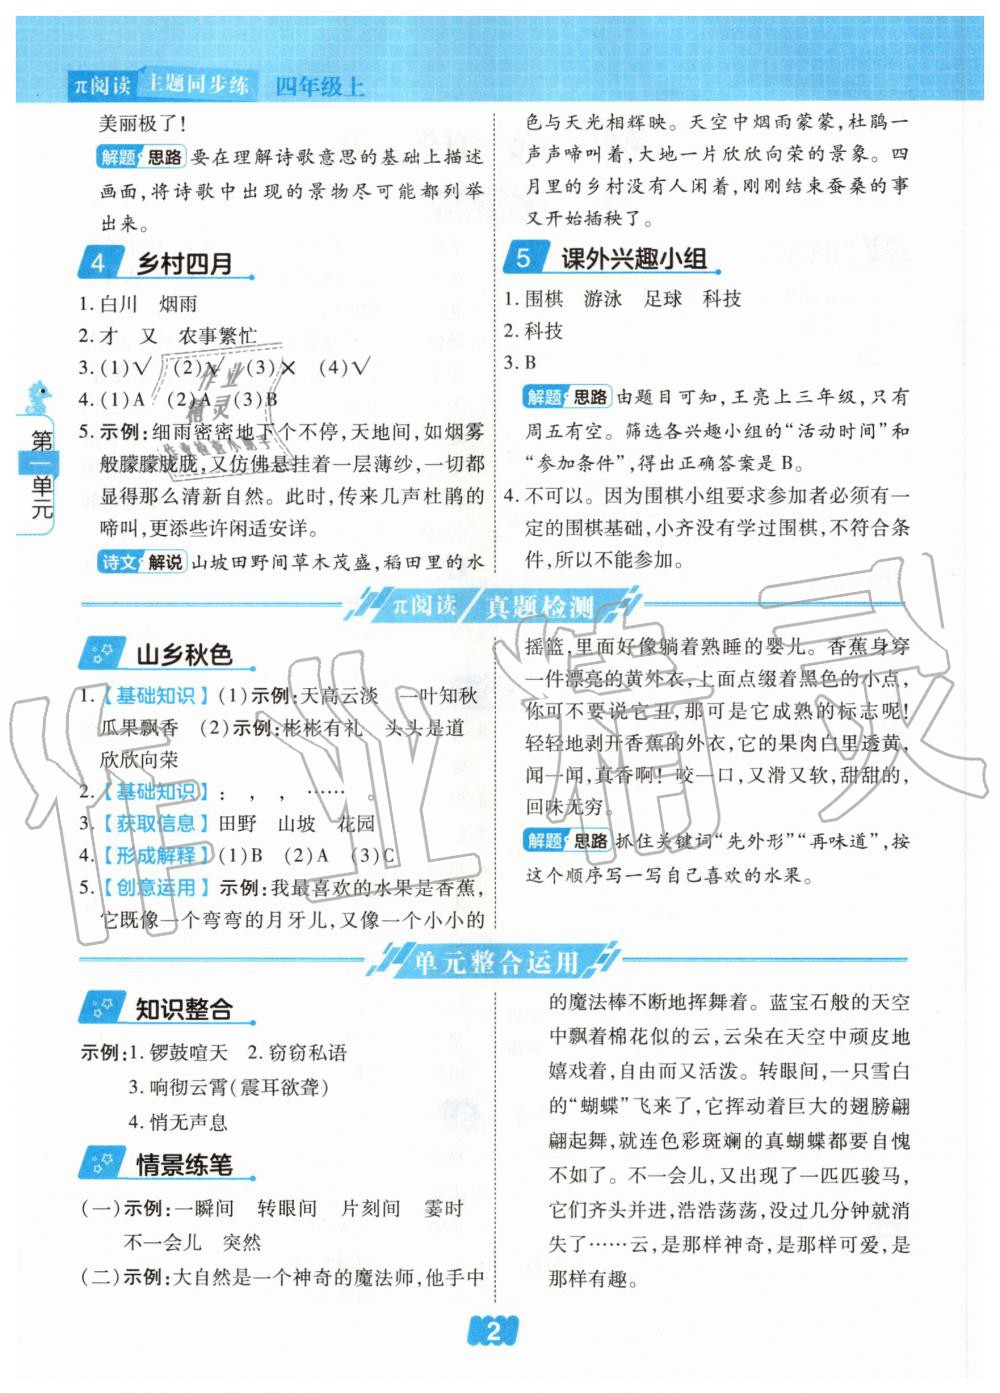 π阅读 主题同步练 四年级上
美丽极了!
解题 思路 要在理解诗歌意思的基础上描述
画面,将诗歌中出现的景物尽可能都列举
出来。
4 乡村四月
1. 白川 烟雨
2. 才 又 农事繁忙
3. (1)√ (2)√ (3)× (4)√
4. (1)A (2)A (3)B
5. 示例:细雨密密地下个不停,天地间,如烟雾
般朦朦胧胧,又仿佛悬挂着一层薄纱,一切都
显得那么清新自然。此时,传来几声杜鹃的
啼叫,更添些许闲适安详。
诗文 解说 山坡田野间草木茂盛,稻田里的水
色与天光相辉映。天空中烟雨蒙蒙,杜鹃一
声声啼叫着,大地一片欣欣向荣的景象。四
月里的乡村没有人闲着,刚刚结束蚕桑的事
又开始插秧了。
5 课外兴趣小组
1. 围棋 游泳 足球 科技
2. 科技
3. B
解题 思路 由题目可知,王亮上三年级,只有
周五有空。筛选各兴趣小组的“活动时间”和
“参加条件”,得出正确答案是 B。
4. 不可以。因为围棋小组要求参加者必须有一
定的围棋基础,小齐没有学过围棋,不符合条
件,所以不能参加。
第一单元
π阅读 真题检测
山乡秋色
1.【基础知识】(1)示例:天高云淡 一叶知秋
瓜果飘香 (2)示例:彬彬有礼 头头是道
欣欣向荣
2.【基础知识】: , , …… 。
3.【获取信息】田野 山坡 花园
4.【形成解释】(1)B (2)A (3)C
5.【创意运用】示例:我最喜欢的水果是香蕉,
它既像一个弯弯的月牙儿,又像一个小小的
摇篮,里面好像躺着熟睡的婴儿。香蕉身穿
一件漂亮的黄外衣,上面点缀着黑色的小点,
你可不要说它丑,那可是它成熟的标志呢!
轻轻地剥开香蕉的外衣,它的果肉白里透黄,
闻一闻,真香啊!咬一口,又滑又软,甜甜的,
回味无穷。
解题 思路 抓住关键词“先外形”“再味道”,按
这个顺序写一写自己喜欢的水果。
单元整合运用
知识整合
示例:1. 锣鼓喧天 2. 窃窃私语
3. 响彻云霄(震耳欲聋)
4. 悄无声息
情景练笔
(一)示例:一瞬间 转眼间 片刻间 霎时
不一会儿 突然
(二)示例:大自然是一个神奇的魔法师,他手中
的魔法棒不断地挥舞着。蓝宝石般的天空
中飘着棉花似的云,云朵在天空中顽皮地
嬉戏着,自由而又活泼。转眼间,一只雪白
的“蝴蝶”飞来了,它挥动着巨大的翅膀翩
翩起舞,就连色彩斑斓的真蝴蝶都要自愧
不如了。不一会儿,又出现了一匹匹骏马,
它们齐头并进,浩浩荡荡,没过几分钟就消
失了……云,是那样神奇,是那样可爱,是
那样有趣。
2
作业精灵
作业精灵